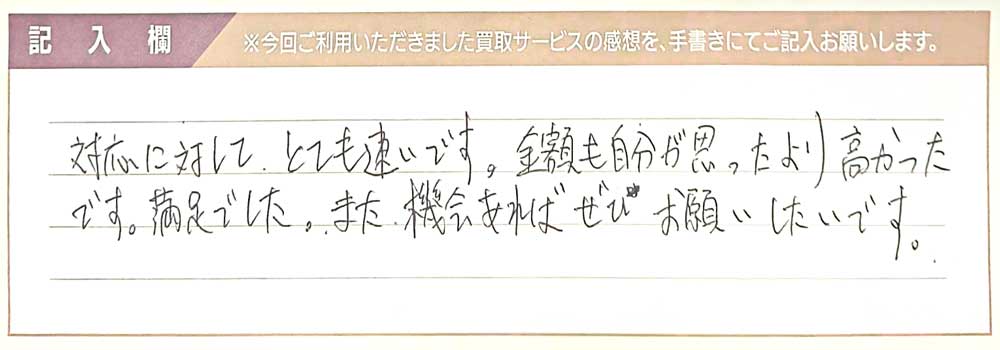 記入欄
※今回ご利用いただきました買取サービスの感想を、手書きにてご記入お願いします。
対応に対して、とても速いです。金額も自分が思ったより高かった
です。満足でした。また、機会あればぜひお願いしたいです。